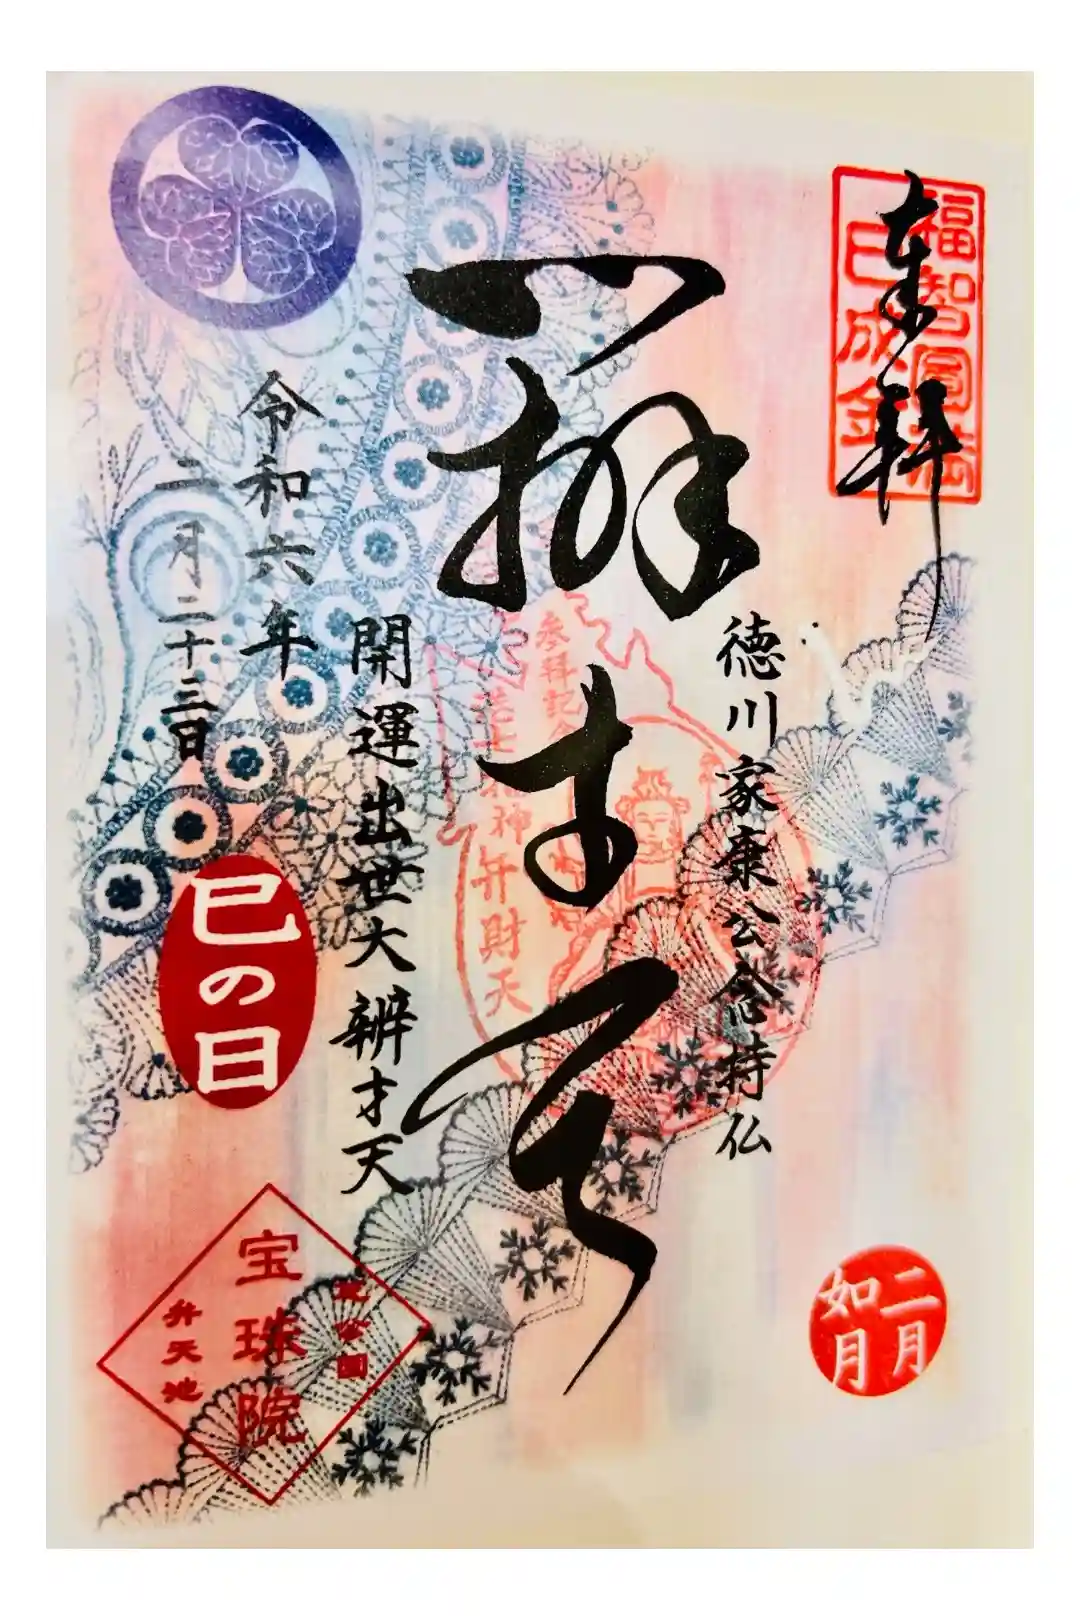 奉拝
福智圓満
巳成金
徳川家康公念持仏
辨才天
参拝記念
弁財天
開運出世大辨才天
令和六年
二月二十三日
巳の日
芝公園
宝珠院
弁天池
二月
如月